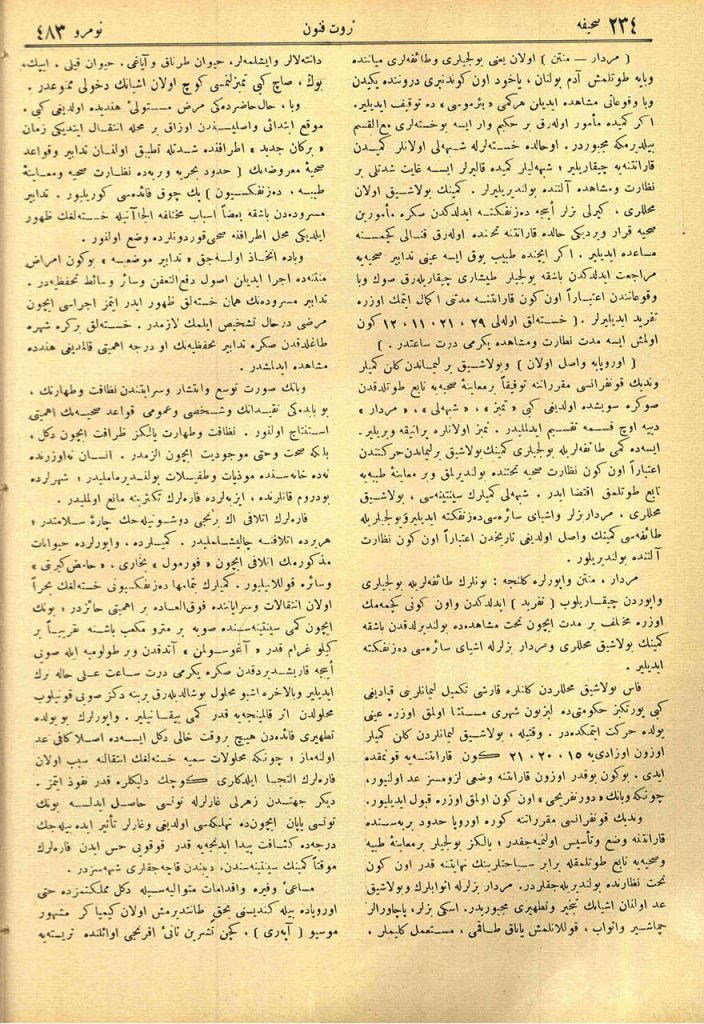 صحیفه ٢٣٤
ثروت فنون
نومرو ٤٨٣
( مردار — منتن ) اولان یعنی یولجیلری وطائفه‌لری میاننده
وبایه طوتلمش آدم بولنان ، یاخود اون كوندنبری دروننده یكیدن
وبا وقوعاتی مشاهده ایدیلن هركمی « پرموسی » ده توقیف ایدیلیر.
اكر كمیده مأمور اوله‌رق بر حكیم وار ایسه بوخسته‌لری مع‌القسم
بیلدیرمكه مجبوردر. اوحالده خسته‌لرله شبهه‌لی اولانلر كمیدن
قارانتنه‌یه چیقاریلیر؛ شبهه‌لیلر كمیده قالیرلر ایسه غایت شدتلی بر
نظارت ومشاهده آلتنده بولندیریلیرلر . كمینك بولاشیق اولان
محللری ، كیرلی بزلر اییجه ده‌زنفكته ایدلدكدن صكره مأمورین
صحیه قرار ویردیكی حالده قارانتنه تحتنده اوله‌رق قنالی كچمسنه
مساعده ایدیلیر . اكر ایچنده طبیب یوق ایسه عینی تدابیر صحیه‌یه
مراجعت ایدلدكدن باشقه یولجیلر طیشاری چیقاریله‌رق صوك وبا
وقوعاتندن اعتباراً اون كون قارانتنه مدتی اكمال ایتمك اوزره
تفرید ایدیلیرلر . ( خسته‌لق اوله‌لی ٢٩ ، ٢١ ، ١١ ، ١٢ كون
اولمش ایسه مدت نظارت ومشاهده یكرمی درت ساعتدر . )
( اوروپایه واصل اولان ) وبولاشیق بر لیماندن كلن كمیلر
وندیك قونفرانسی مقرراتنه توفیقاً برمعاینۀ صحیه‌یه تابع طوتلدقدن
صوكره سویشده اولدیغی كبی « تمیز » ، « شبهه‌لی » ، « مردار »
دییه اوچ قسمه تقسیم ایدلملیدر . تمیز اولانلره پراتیقه ویریلیر.
ایسه‌ده كمی طائفه‌لریله یولجیلری كمینك بولاشیق برلیماندن حركتندن
اعتباراً اون كون نظارت صحیه تحتنده بولندیرلمق وبر معاینۀ طبیه‌یه
تابع طوتلمق اقتضا ایدر . شبهه‌لی كمیلرك سینتینه‌سی ، بولاشیق
محللری ، مرداربزلر واشیای سائره‌سی ده‌زنفكته ایدیلیر ویولجیلریله
طائفه‌سی كمینك واصل اولدیغی تاریخدن اعتباراً اون كون نظارت
آلتنده بولندیریلور.
مردار ، منتن واپورلره كلنجه : بونلرك طائفه‌لریله یولجیلری
واپوردن چیقاریلوب ( تفرید ) ایدلدكدن واون كونی كچمه‌مك
اوزره مختلف بر مدت ایچون تحت مشاهده‌ده بولندیرلدقدن باشقه
كمینك بولاشیق محللری ومردار بزلرله اشیای سائره‌سی ده‌زنفكته
ایدیلیر .
فاس بولاشیق محللردن كلنلره قارشی تكمیل لیمانلرینی قپادیغی
كبی پورتكیز حكومتی‌ده لیزبون شهری مستثنا اولمق اوزره عینی
یولده حركت ایتمكده‌در . وقتیله ، بولاشیق لیمانلردن كلن كمیلر
اوزون اوزادی‌یه ١٥ ، ٢٠ ، ٢١ كون قارانتنه‌یه قونمقده
ایدی . بوكون بوقدر اوزون قارانتنه وضعی لزومسز عد اولنیور،
چونكه وبانك « دور تفریخی » اون كون اولمق اوزره قبول ایدیلیور.
وندیك قونفرانسی مقرراتنه كوره اوروپا حدود بریه‌سنده
قارانتنه وضع وتأسیس اولنمیه‌جقدر ؛ یالكز یولجیلر برمعاینۀ طبیه
وصحیه‌یه تابع طوتلمقله برابر سیاحتلرینك نهایتنه قدر اون كون
تحت نظارتده بولندیریله‌جقلردر. مردار بزلرله اثوابلرك وبولاشیق
عد اولنان اشیانك تبخیر وتطهیری مجبوریدر. اسكی بزلر، پاچاورالر
چماشیر واثواب ، قوللانلمش یاتاق طاقمی ، مستعمل كلیملر ،
دانته‌لالر وایشلمه‌لر، حیوان طرناق وآیاغی . حیوان قیلی . ایپك،
یوك ، صاچ كبی تمیزلنمسی كوچ اولان اشیانك دخولی ممنوعدر .
وبا ، حال حاضرده‌كی مرض مستولیٔ هندیده اولدیغی كبی ،
موقع ابتدائی واصلیسندن اوزاق بر محله انتقال ایتدیكی زمان
« بركان جدید » اطرافنده شدتله تطبیق اولنان تدابیر وقواعد
صحیۀ معروضه‌نك ( حدود بحریه وبریه‌ده نظارت صحیه ومعاینۀ
طبیه ، ده‌زنفكسیون ) پك چوق فائده‌سی كوریلیور . تدابیر
مسروده‌دن باشقه بعضاً اسباب مختلفه الجاآتیله خسته‌لغك ظهور
ایلدیكی محل اطرافنه صحی قوردونلرده وضع اولنور .
وباده اتخاذ اولنه‌جق « تدابیر موضعیه » بوكون امراض
منتنه‌ده اجرا ایدیلن اصول دفع‌التعفن وسائر وسائط تحفظیه‌در .
تدابیر مسروده‌نك همان خسته‌لق ظهور ایدر ایتمز اجراسی ایچون
مرضی درحال تشخیص ایلمك لازمدر . خسته‌لق بركره شهره
طاغلدقدن صكره تدابیر تحفظیه‌نك او درجه اهمیتی قالمدیغی هندده
مشاهده ایدلمشدر .
وبانك صورت توسع وانتشار وسرایتندن نظافت وطهارتك ،
یو بابده‌كی نقیدانك وشخصی وعمومی قواعد صحیه‌نك اهمیتی
استنتاج اولنور . نظافت وطهارت یالكز ظرافت ایچون دكل ،
بلكه صحت وحتی موجودیت ایچون الزمدر . انسان نه‌اوزرنده
نه‌ده خانه‌سنده موذیات وطفیلات بولندیرمامليدر ؛ شهرلرده
بودروم قاتلرنده ، ایزبه‌لرده فاره‌لرك تكثرینه مانع اولملیدر .
فاره‌لرك اتلافی اك برنجی دوشونیله‌جك چارۀ سلامتدر ؛
هریرده اتلافنه چالیشلملیدر . كمیلرده ، واپورلرده حیوانات
مذكوره‌نك اتلافی ایچون « فورمول » بخاری ، « حامض كبریتی »
وسائره قوللانیلیور . كمیلرك تمامها ده‌زنفكسیونی خسته‌لغك بحراً
اولان انتقالات وسرایاتنده فوق‌العاده بر اهمیتی حائزدر ؛ بونك
ایچون كمی سینتینه‌سنده صویه بر مترو مكعب باشنه تقریباً بر
كیلو غرام قدر « آنغوسولمن » آندقدن وبر طولومبه ایله صوینی
اییجه قاریشدیردقدن صكره یكرمی درت ساعت علی حاله ترك
ایدیلیر وبالاخره اشبو محلول بوشالدیله‌رق یرینه دكز صویی قونیلوب
محلولدن اثر قالمینجه‌یه قدر كمی بیقانیلیر . واپورلرك بو یولده
تطهیری فائده‌دن هیچ بروقت خالی دكل ایسه‌ده اصلا كافی عد
اولنه‌ماز ؛ چونكه محلولات سمیه خسته‌لغك انتقالنه سبب اولان
فاره‌لرك التجا ایلدكاری كوچك دلیكلره قدر نفوذ ایتمز .
دیكر جهتدن زهرلی غازلرله توتسی حاصل ایدلسه بونك
توتسی یاپان ایچون‌ده تهلكه‌سی اولدیغی وغازلر تأثیر ایده بیله‌جك
درجه‌ده كثافت پیدا ایدنجه‌یه قدر قوقویی حس ایدن فاره‌لرك
موقتاً كمینك سینتینه‌سندن، دیبندن قاچه‌جقلری شبهه‌سزدر.
مساعیٔ وفیره واقدامات متوالیه‌سیله دكل مملكتمزده حتی
اوروپاده بیله كندیسنی بحق طانتدیرمش اولان كیمیاكر مشهور
موسیو ( آپه‌ری ) ، كچن تشرین ثانیٔ افرنجی اوائلنده تریسته‌یه